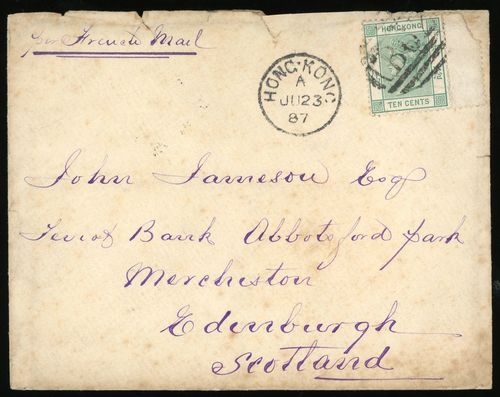 per French Mail
HONG-KONG
A
JU 23
87
HONGKONG
TEN CENTS
John Jameson Esq
Teviot Bank Abbotsford Park
Merchiston
Edinburgh
Scotland